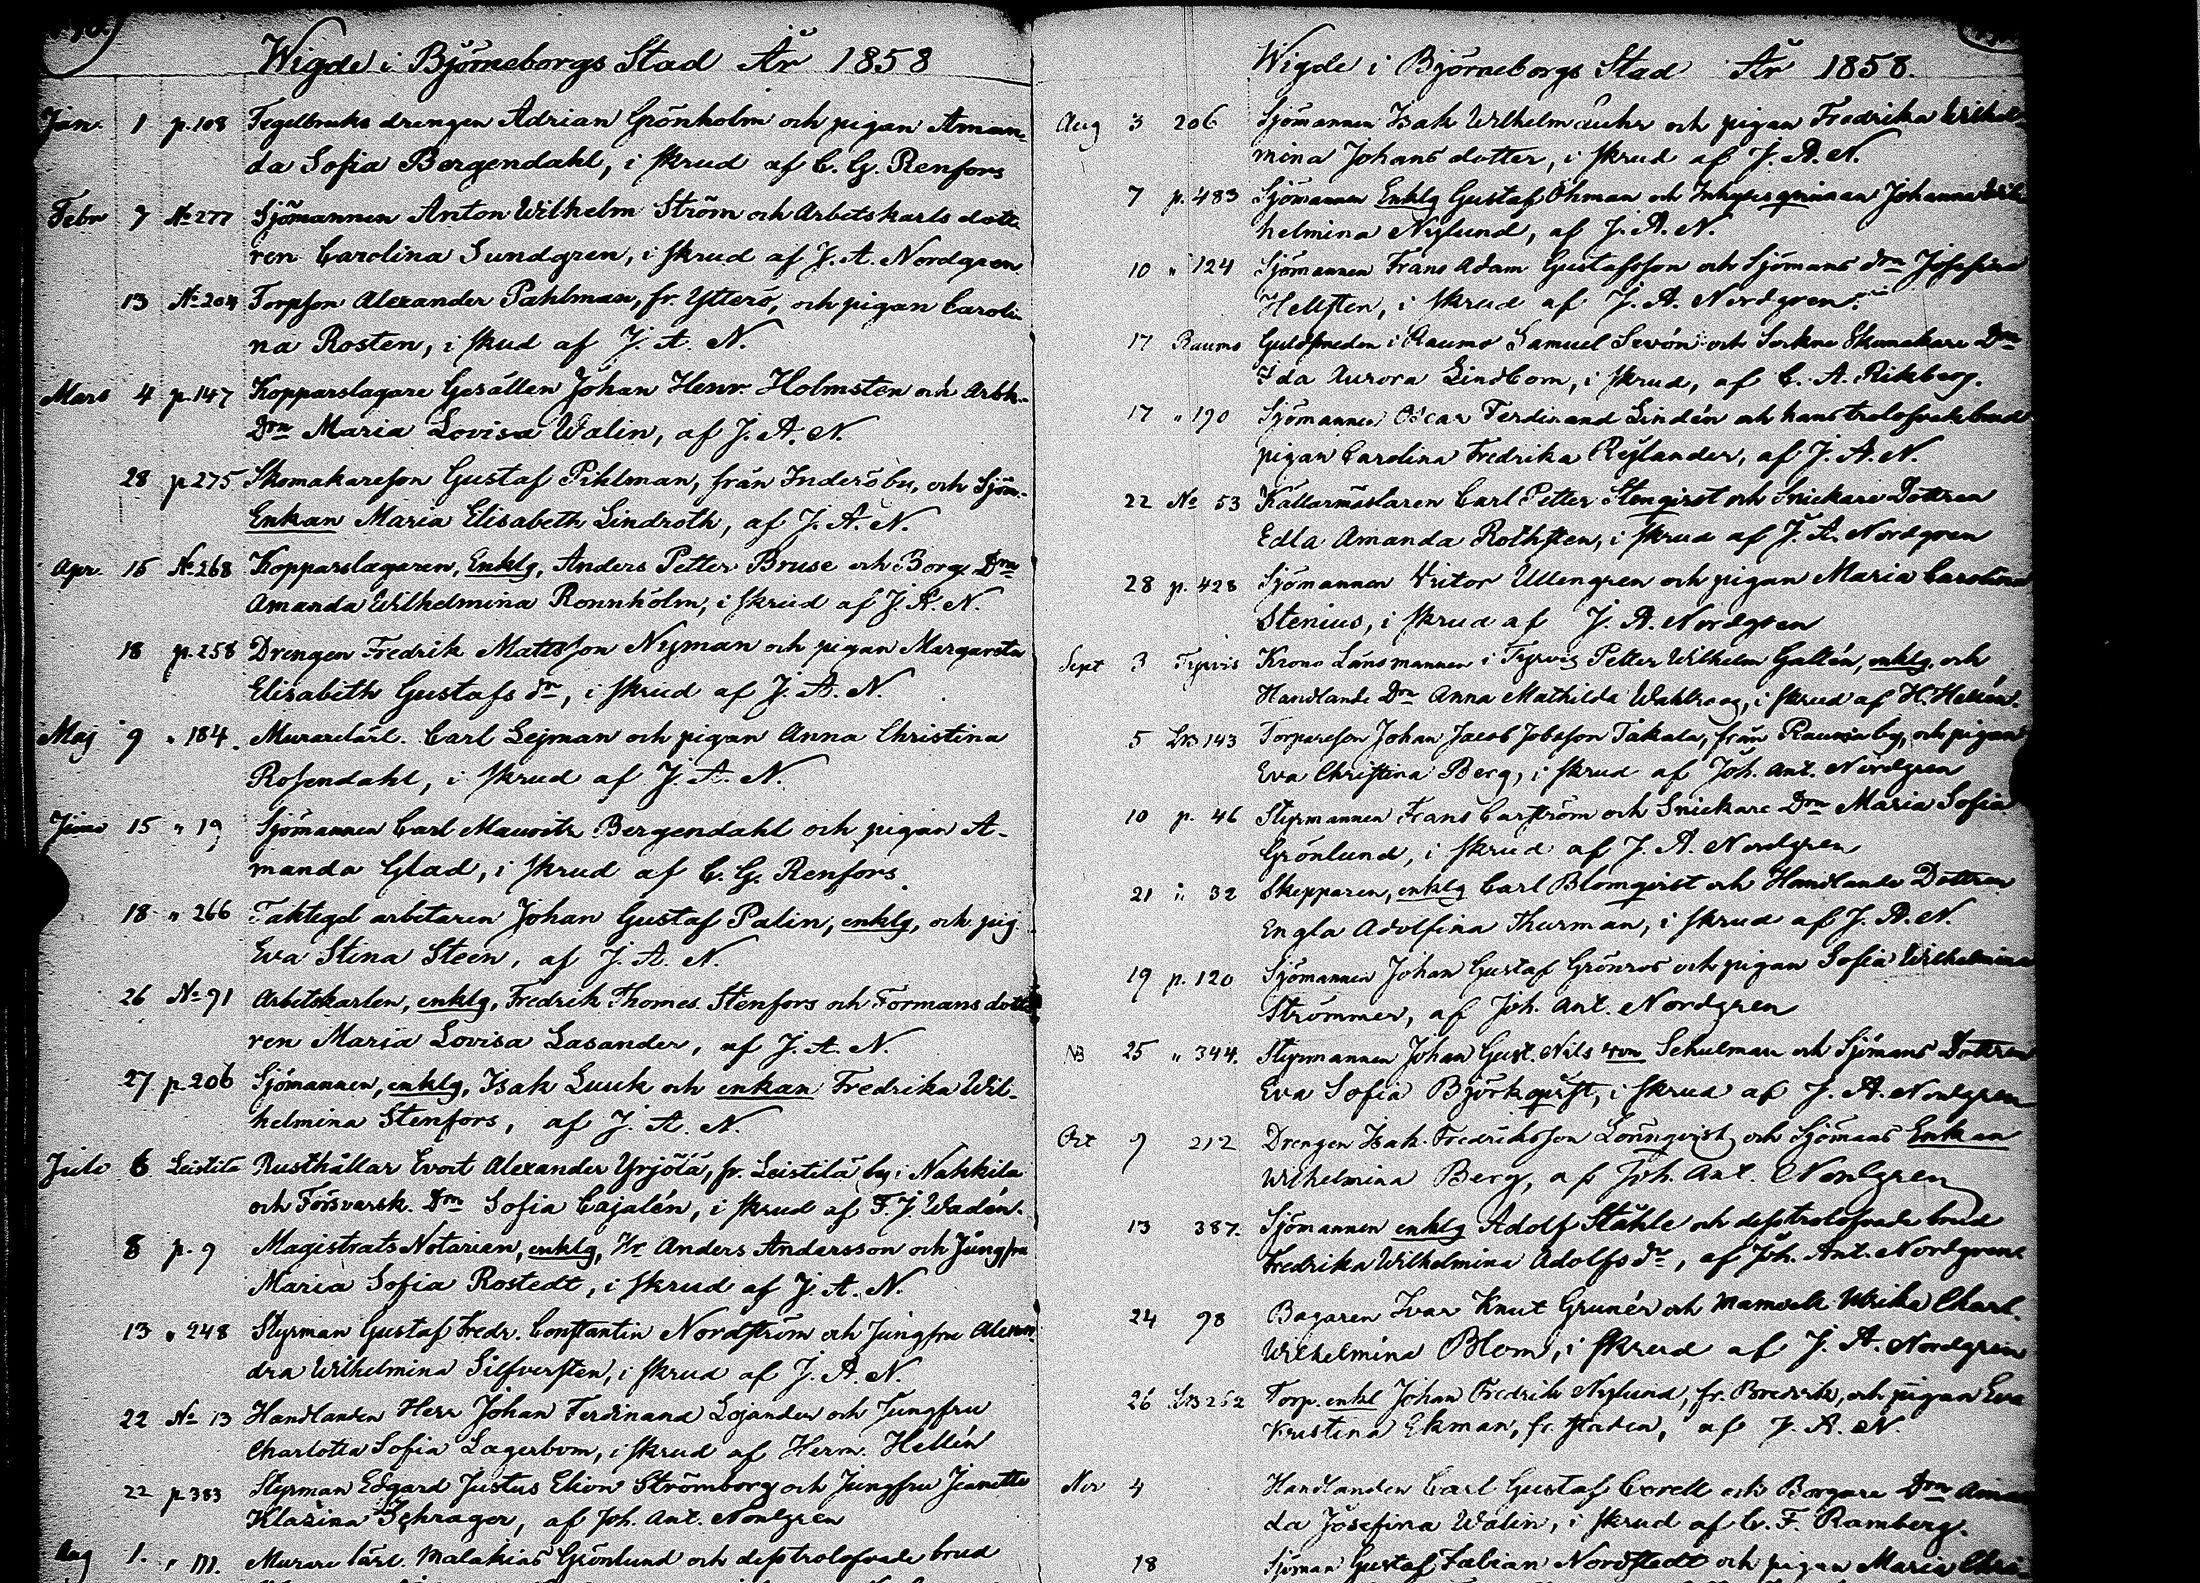 Wigde i Björneborgs Stad År 1858
Jan. 1 p. 108 Tegelbruks drengen Adrian Grönholm och pigan Aman-
da Sofia Bergendahl, i skrud af C. G. Renfors
Febr 7 No 277 Sjömannen Anton Wilhelm Ström och Arbetskarls dott-
ren Carolina Sundgren, i skrud af J. A. Nordgren
13 No 204 Torpson Alexander Pahlman, fr. Ytterö, och pigan Caroli-
na Rosten, i skud af J. A. N.
Mars 4 p. 147 Kopparslagare Gesällen Johan Henr. Holmsten och Arbk.
Drn Maria Lovisa Walin, af J. A. N.
28 p 275 Skomakareson Gustaf Pihlman, från Inderöby, och Sjöm.
Enkan Maria Elisabeth Lindroth, af J. A. N.
Apr. 15 No 268 Kopparslagaren, Enklg, Anders Petter Bruse och Borg. Drn
Amanda Wilhelmina Rönnholm, i skrud af J. A. N.
18 p. 258 Drengen Fredrik Mattsson Nyman och pigan Margareta
Elisabeth Gustafs dr, i skrud af J. A. N.
Maj 9 " 184. Murarelärl. Carl Lejman och pigan Anna Christina
Rosendahl, i skrud af J. A. N.
Juni 15 " 19 Sjömannen Carl Mauritz Bergendahl och pigan A-
manda Glad, i skrud af C. G. Renfors.
18 " 266 Taktegel arbetaren Johan Gustaf Palin, enklg, och pig
Eva Stina Steen, af J. A. N.
26 No 91 Arbetskarlen, enklg, Fredrik Thomes. Stenfors och Formans dott-
ren Maria Lovisa Lasander, af J. A. N.
27 p. 206 Sjömannen, enklg, Isak Luuk och enkan Fredrika Wil-
helmina Stenfors, af J. A. N.
Juli 6 Leistila Rusthållar Evert Alexander Yrjölä, fr. Leistilä by i Nakkila
och Försvarsk. Drn Sofia Cajalén, i skrud af F. J. Wadén.
8 p. 9 Magistrats Notarien, enklg, Hr Anders Andersson och Jungfru
Maria Sofia Rostedt, i skrud af J. A. N.
13 " 248 Styrman Gustaf Fredr. Constantin Nordström och Jungfru Alexan-
dra Wilhelmina Silfversten, i skrud af J. A. N.
22 No 13 Handlanden Herr Johan Ferdinand Lojander och Jungfru
Charlotta Sofia Lagerbom, i skrud af Herm. Hellén
22 p 383 Styrman Edgard Justus Elion Strömborg och Jungfru Jeanette
Klarina Schrager, af Joh. Ant. Nordgren
Aug 1. " 111. Murare lärl. Malakias Grönlund och dess trolofvade brud
Wigde i Björneborgs Stad År 1858.
Aug 3 206 Sjömannen Isak Wilhelm och pigan Fredrika Wilhel-
mina Johans dotter, i skrud af J. A. N.
7 p. 483 Sjömannen Enklg Gustaf Öhman och Inhyses qvinnan Johanna Wil-
helmina Nylund, af J. A. N.
10 " 124 Sjömannen Frans Adam Gustafsson och Sjömans drn Josefina
Hellsten, i skrud af J. A. Nordgren.
17 Raumo Guldsmeden i Raumo Samuel Sevón och Sockne Skomakare Drn
Ida Aurora Lindbom, i skrud, af C. A. Rikberg.
17 " 190 Sjömannen Oscar Ferdinand Lindén och hans trolofvade brud
pigan Carolina Fredrika Reylander, af J. A. N.
22 No 53 Källarmästaren Carl Petter Stenqvist och Snickare Dottren
Edla Amanda Rothsten, i skrud af J. A. Nordgren
28 p. 428 Sjömannen Victor Ullengren och pigan Maria Carolina
Stenius, i skrud af J. A. Nordgren
Sept 3 Tyrvis Krono Länsmannen i Tyrvis Petter Wilhelm Gallén, enklg, och
Handlande Dr Anna Mathilda Wahlroos, i skrud af H. Hellén.
5 LB 143 Torpareson Johan Jacob Jobsson Takala, från Raumo by, och pigan
Eva Christina Berg, i skrud af Joh. Ant. Nordgren
10 p. 46 Styrmannen Frans Carström och Snickare Drn Maria Sofia
Grönlund, i skrud af J. A. Nordgren
21 " 32 Skepparen, enklg Carl Blomqvist och Handlande Dottren
Engla Adolfina Thurman, i skrud af J. A. N.
19 p. 120 Sjömannen Johan Gustaf Grönros och pigan Sofia Wilhelmina
Strömmer, af Joh. Ant. Nordgren
NB 25 " 344. Styrmannen Johan Gust. Nils von Schulman och Sjömans Dottren
Eva Sofia Björkqvist, i skrud af J. A. Nordgren
Oct 9 212 Drengen Isak Fredriksson Lönnqvist och Sjömans Enkan
Wilhelmina Berg, af Joh. Ant. Nordgren
13 387. Sjömannen enklg Adolf Ståhle och dess trolofvade brud
Fredrika Wilhelmina Adolfs dr, af Joh. Ant. Nordgren
24 98 Bagaren Ivar Knut Grunér och Mamsell Ulrika Charl.
Wilhelmina Blom, i skrud af J. A. Nordgren
26 LB 262 Torp. enkl Johan Fredrik Nylund, fr. och pigan Eva
Kristina Ekman, fr. af J. A. N.
Nov 4 Handlanden Carl Gustaf Corell och Borgare Drn Aman-
da Josefina Walin, i skrud af C. F. Ramberg.
18 Sjöman Gustaf Fabian Nordstedt och pigan Maria Chri-